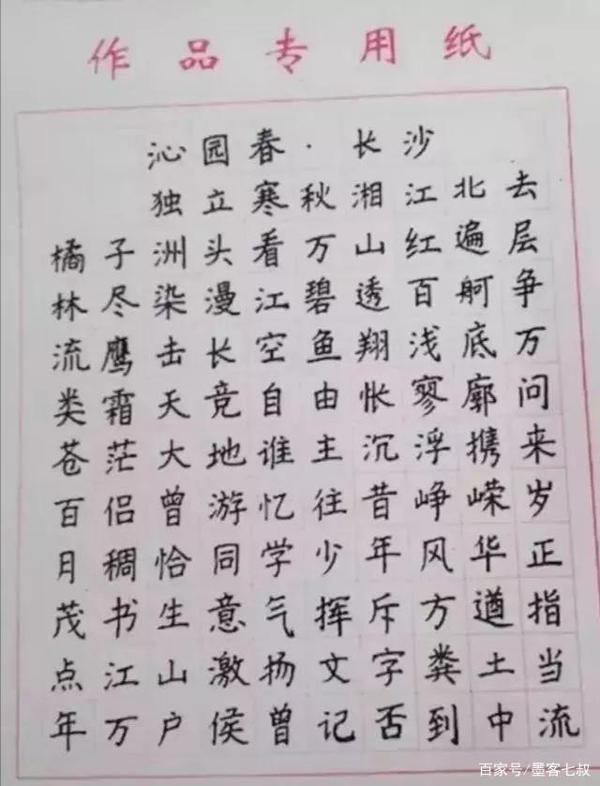 作品专用纸
沁园春·长沙
独立寒秋湘江北去
橘子洲头看万山红遍层
林尽染漫江碧透百舸争
流鹰击长空鱼翔浅底万
类霜天竞自由怅寥廓问
苍茫大地谁主沉浮携来
百侣曾游忆往昔峥嵘岁
月稠恰同学少年风华正
茂书生意气挥斥方遒指
点江山激扬文字粪土当
年万户侯曾记否到中流
百家号/墨客七叔